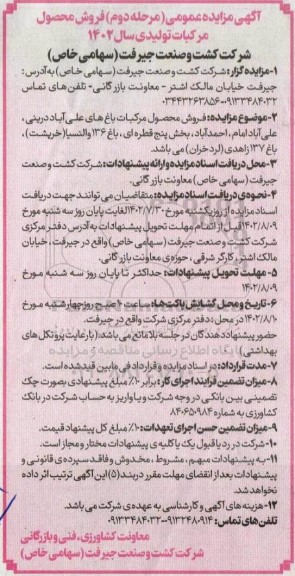 آگهی مزایده عمومی (مرحله دوم) فروش محصول
مرکبات تولیدی سال ۱۴۰۲
شرکت کشت و صنعت جیرفت (سهامی خاص)
۱-مزایده گزار: شرکت کشت و صنعت جیرفت (سهامی خاص) به آدرس:
جیرفت خیابان مالک اشتر - معاونت بازرگانی- تلفن های تماس
۰۹۱۳۳۴۸۴۰۳۲-۰۳۴۴۳۲۶۳۸۵۶
۲-موضوع مزایده: فروش محصول مرکبات باغ های علی آباد درینی،
علی آباد امام، احمدآباد، بخش پنج قطره ای، باغ ۱۳۶ والنسیا (خرپشت)،
باغ ۱۳۷ زاهدی (لردخران) می باشد.
۳-محل دریافت اسناد مزایده و ارائه پیشنهادات: شرکت کشت و صنعت
جیرفت (سهامی خاص) معاونت بازرگانی.
۴-نحوه ی دریافت اسناد مزایده: متقاضیان می توانند جهت دریافت
اسناد مزایده از روز یکشنبه مورخ ۱۴۰۲/۷/۳۰ لغایت پایان روز سه شنبه مورخ
۱۴۰۲/۸/۰۹ قبل از اتمام مهلت تحویل پیشنهادات به آدرس دفتر مرکزی
شرکت کشت و صنعت جیرفت (سهامی خاص) واقع در جیرفت، خیابان
مالک اشتر، کارگر شرقی، حوزه ی معاونت بازرگانی.
۵-مهلت تحویل پیشنهادات: حداکثر تا پایان روز سه شنبه مورخ
۱۴۰۲/۸/۰۹
۶-تاریخ و محل گشایش پاکت ها: ساعت ۱۰ صبح روز چهارشنبه مورخ
۱۴۰۲/۸/۱۰ در محل: دفتر مرکزی شرکت واقع در جیرفت.
حضور پیشنهاددهندگان در جلسه بلامانع می باشد، (با رعایت پروتکل های
بهداشتی)
۷-مدت قرارداد: در اسناد مزایده و قرارداد فی مابین قید شده است.
۸-میزان تضمین فرآیند اجرای کار: برابر ۱۰٪ مبلغ پیشنهادی بصورت چک
تضمینی بین بانکی در وجه شرکت و یا واریز به حساب شرکت در بانک
کشاورزی به شماره ۸۴۰۶۵۰۹۸۴
۹-میزان تضمین حسن اجرای تعهدات: ۱۰٪ مبلغ کل پیشنهاد قیمت.
۱۰-شرکت در رد یا قبول یک یا کلیه ی پیشنهادات مختار و مجاز است.
۱۱-به پیشنهادات مبهم، مشروط، مخدوش و فاقد سپرده ی قانونی و
پیشنهادات بعد از انقضای مهلت مقرر در بند (۵) این آگهی ترتیب اثر داده
نخواهد شد.
۱۲-هزینه های آگهی و کارشناسی به عهده ی شرکت می باشد.
تلفن های تماس: ۰۹۱۳۲۴۸۰۹۱۴-۰۹۱۳۳۴۸۴۰۳۲
معاونت کشاورزی، فنی و بازرگانی
شرکت کشت و صنعت جیرفت (سهامی خاص)